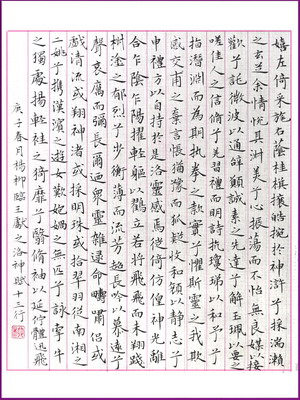 嬉左倚采旄右蔭桂旗攘皓捥於神滸兮采湍瀨
之玄芝余情悅其淑美兮心振蕩而不怡無良媒以接
歡兮託微波以通辭願誠素之先達兮解玉珮以要之
嗟佳人之信脩兮羌習禮而明詩抗瓊珶以和予兮
指潛淵而為期執拳之款實兮懼斯靈之我欺
感交甫之棄言悵猶豫而狐疑收和顏以靜志兮
申禮防以自持於是洛靈感焉徙倚仿偟神光離
合乍陰乍陽擢輕軀以鶴立若將飛而未翔踐
椒塗之郁烈兮步衡薄而流芳超長吟以慕遠兮
聲哀厲而彌長爾迺眾靈雜遝命疇嘯侶或
戲清流或翔神渚或采明珠或拾翠羽從南湘之
二姚兮攜漢濱之游女歎媧之無匹兮詠牽牛
之獨處揚輕桂之猗靡兮翳脩袖以延佇體迅飛
庚子春月楊柳臨王獻之洛神賦十三行